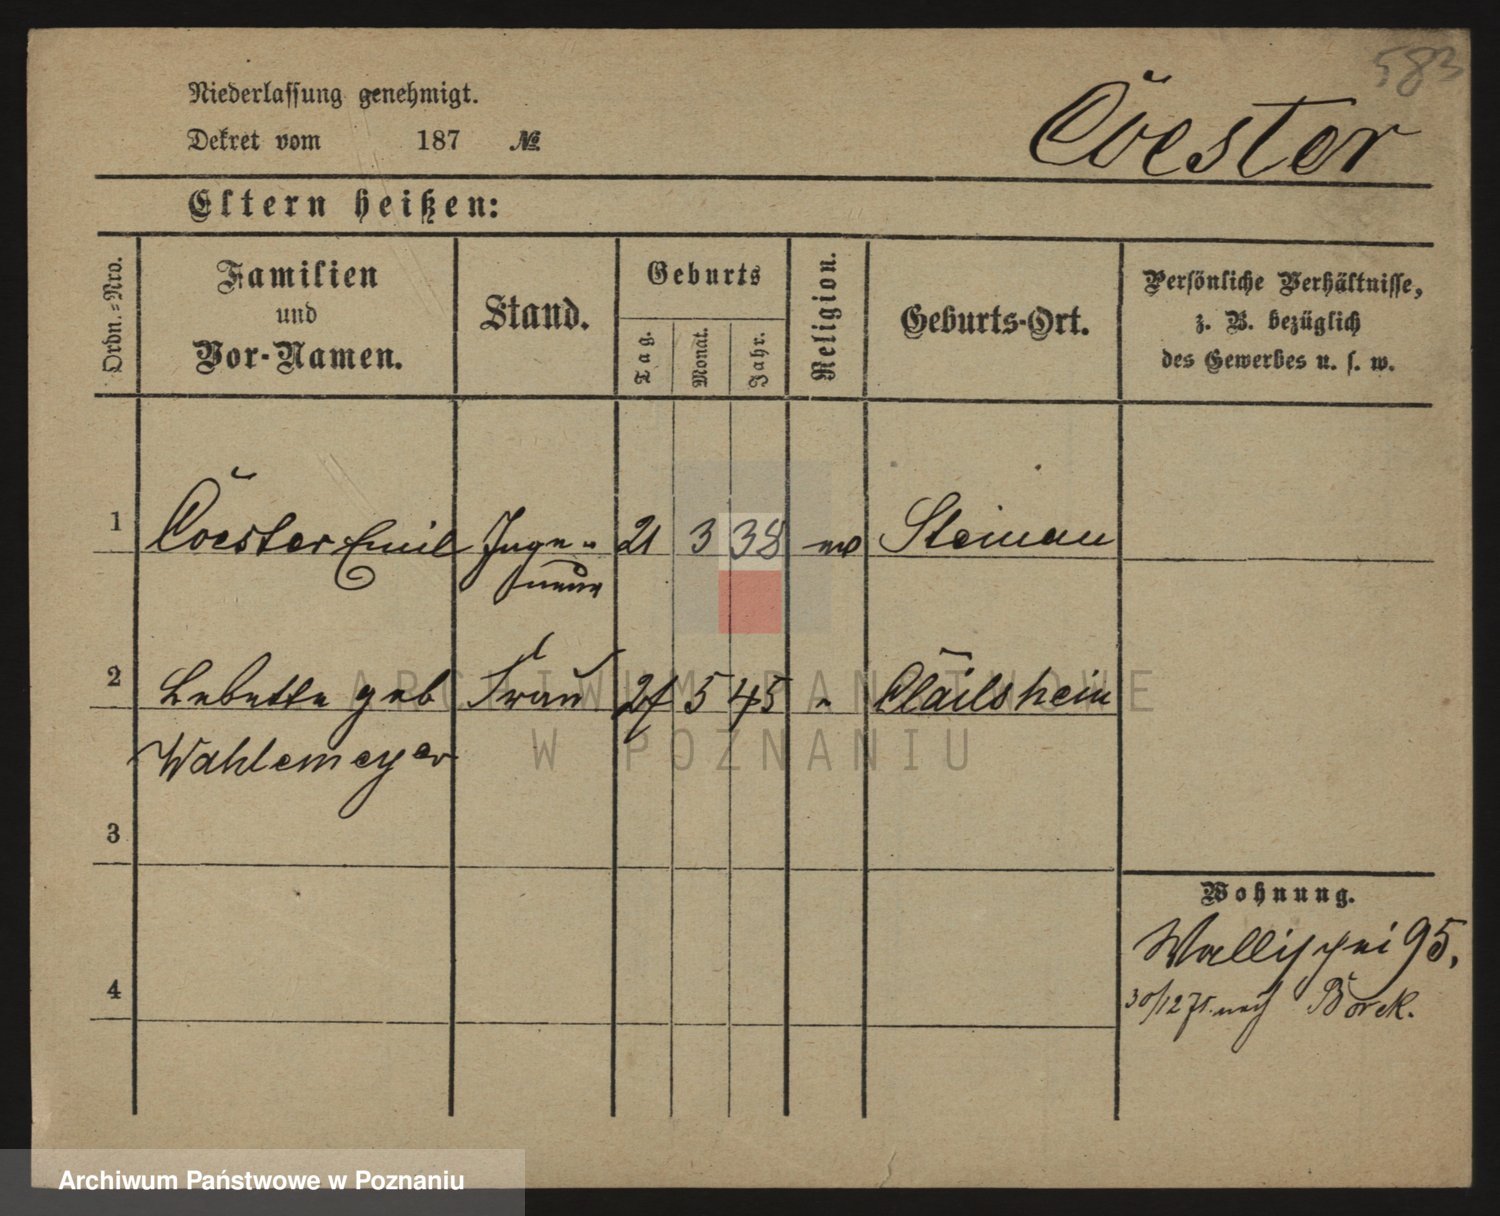 583
Niederlassung genehmigt.
Dekret vom 187 №
Coester
Eltern heißen:
Ordn.=Nro.
Familien
und
Vor-Namen.
Stand.
Geburts
Tag.
Monat.
Jahr.
Religion.
Geburts-Ort.
Persönliche Verhältnisse,
z. B. bezüglich
des Gewerbes u. s. w.
1 Coester Emil Inge- 21 3 38 ev Steinau
nieur
2 Babette geb Frau 5 45 "
Wahlemeyer
3
Wohnung.
Wallischei 95,
4
30/12 71. nach Borek.
ARCHIWUM PAŃSTWOWE
W POZNANIU
Archiwum Państwowe w Poznaniu